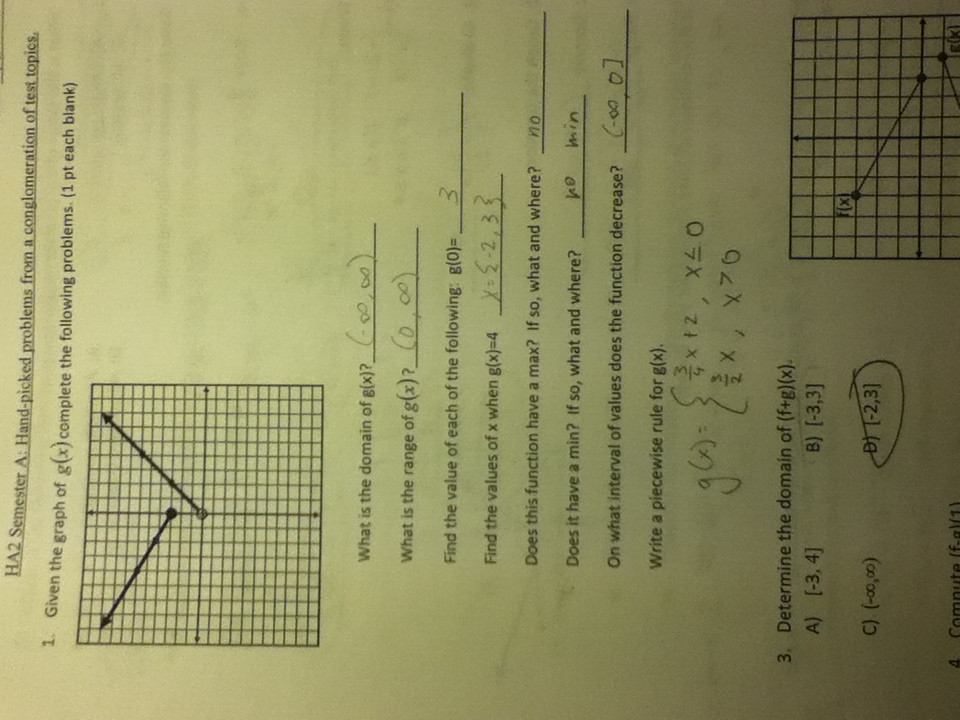 HA2 Semester A: Hand-picked problems from a conglomeration of test topics.
1. Given the graph of g(x) complete the following problems. (1 pt each blank)
What is the domain of g(x)? (-∞, ∞)
What is the range of g(x)? (0, ∞)
Find the value of each of the following: g(0)= 3
Find the values of x when g(x)=4 x={-2, 3}
Does this function have a max? If so, what and where? no
Does it have a min? If so, what and where? no min
On what interval of values does the function decrease? (-∞, 0]
Write a piecewise rule for g(x).
g(x)= { 3/4 x + 2, x ≤ 0
3/2 x, x > 0
3. Determine the domain of (f+g)(x).
A) [-3, 4] B) [-3,3]
C) (-∞,∞) D) [-2,3]
f(x)
g(x)
4. Compute (f-g)(1)